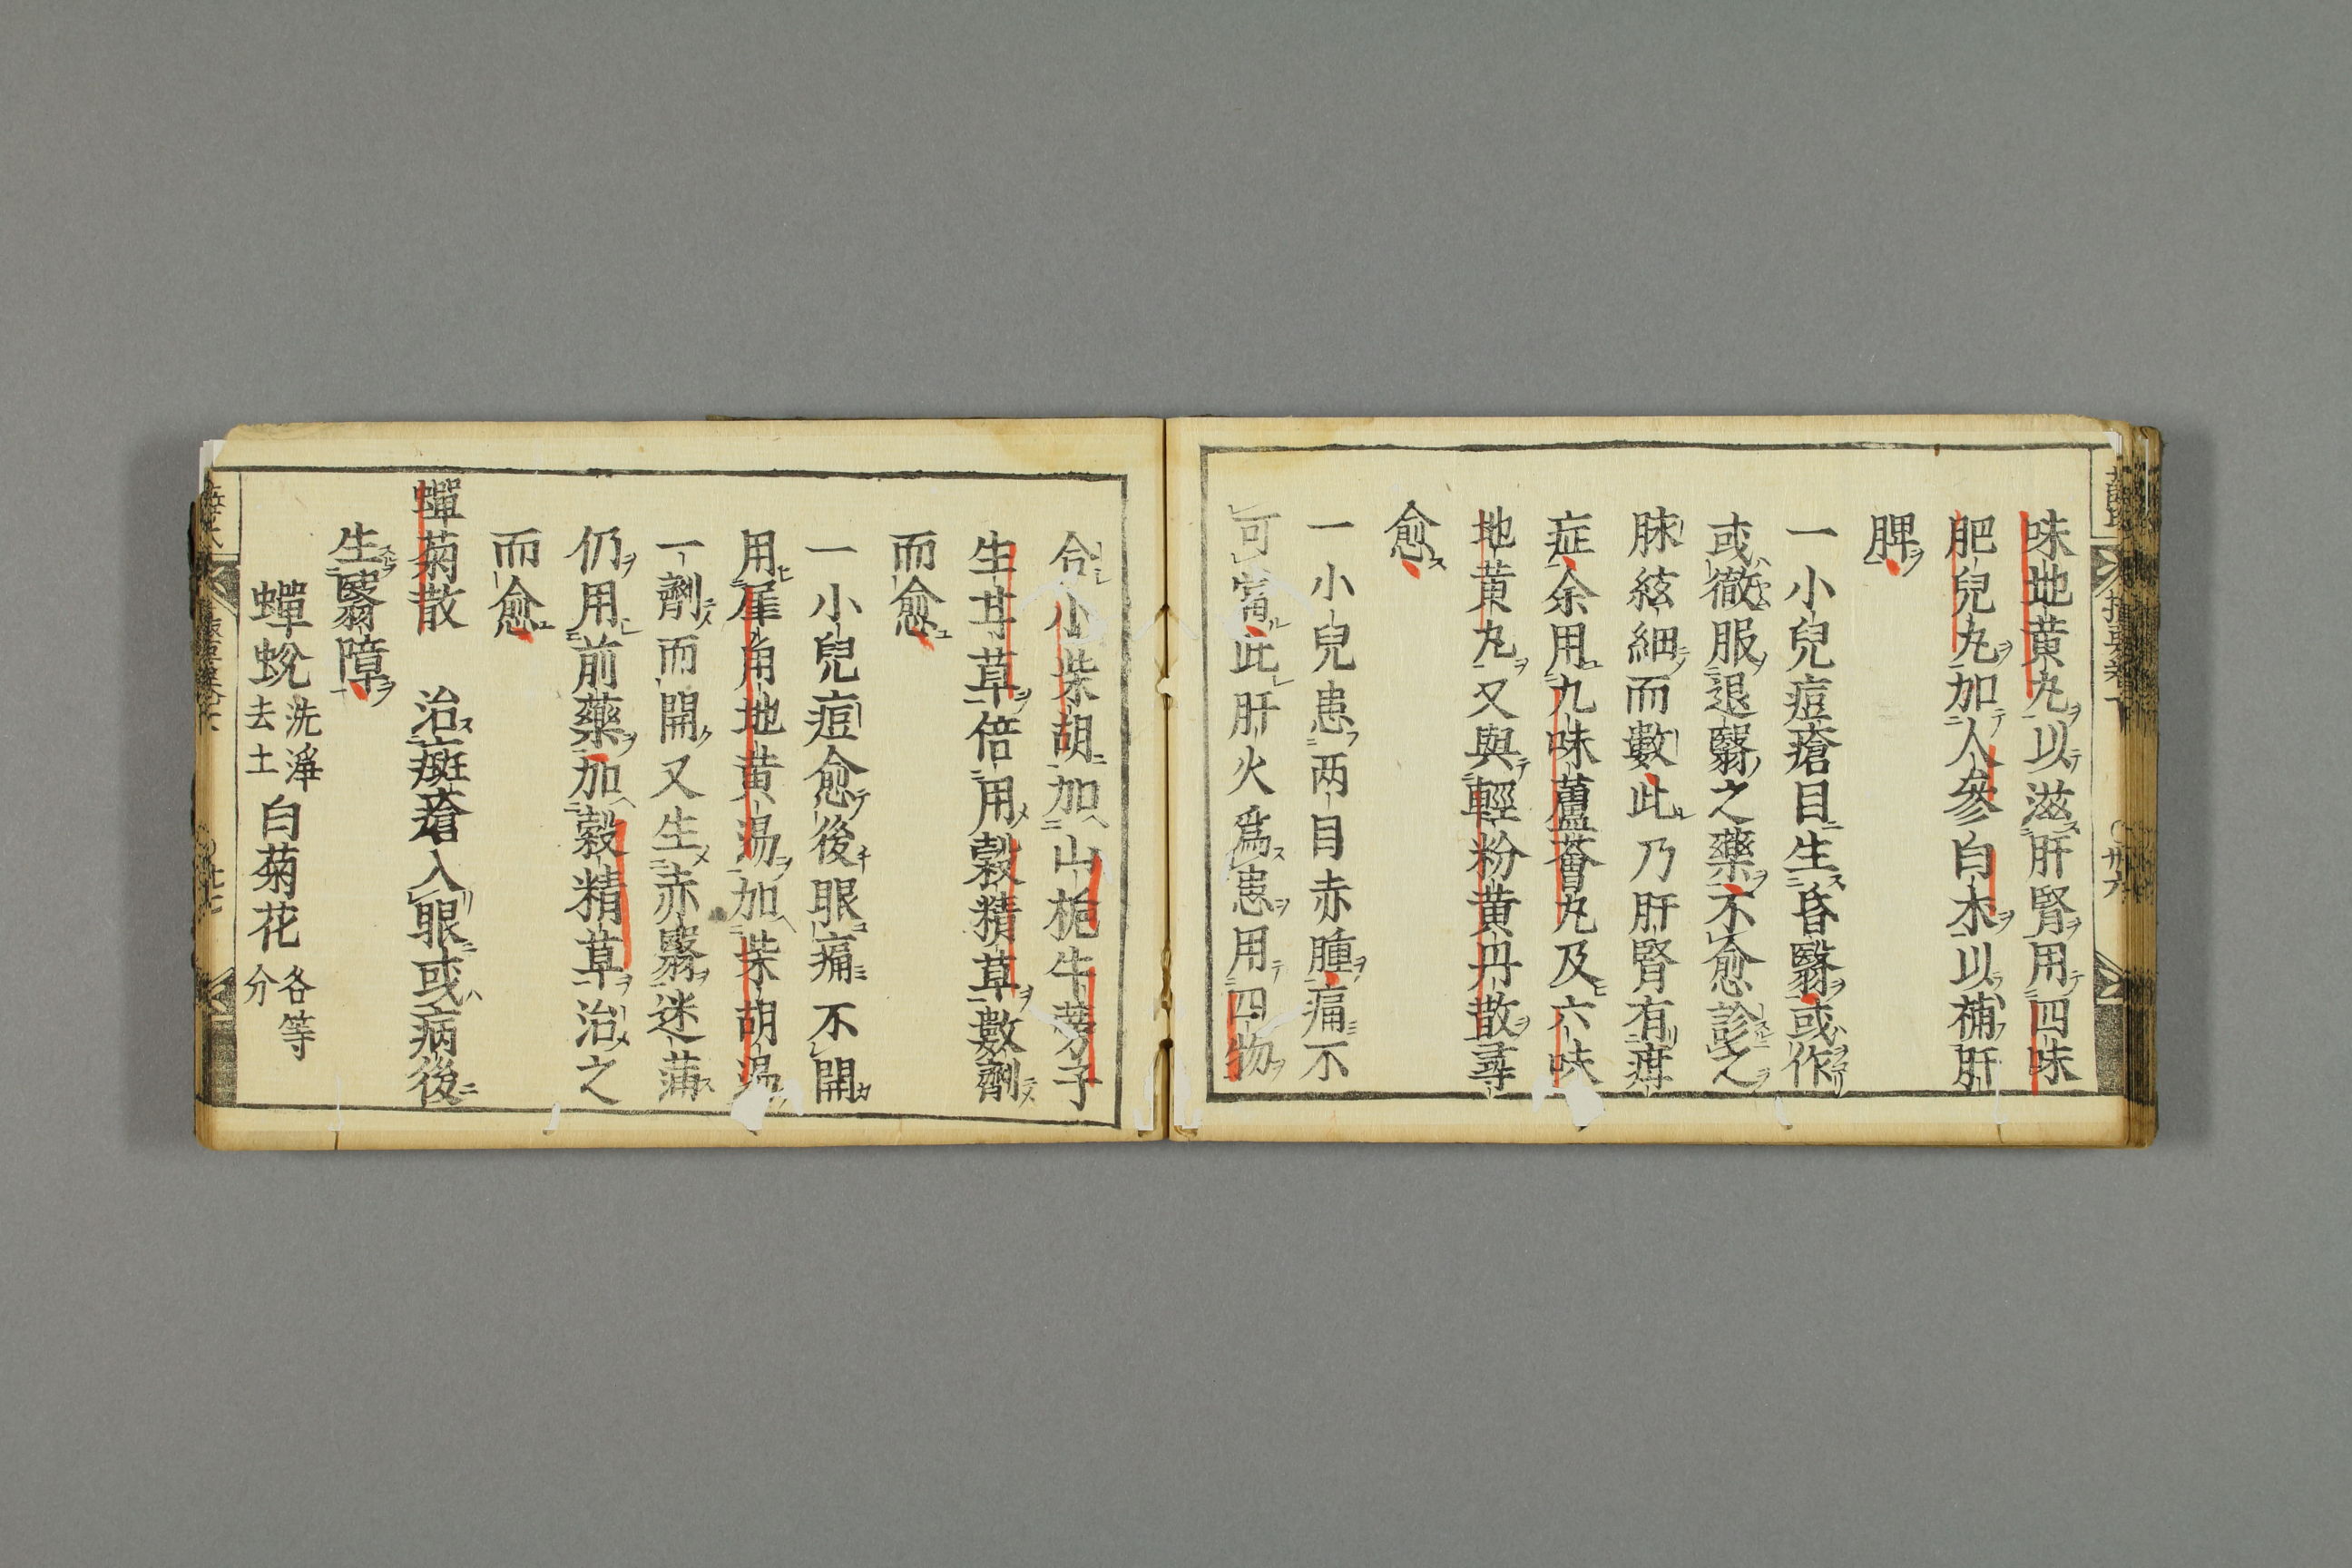 味地黄丸以滋肝腎用四味
肥兒丸加人參白木以補肝
脾
一小兒痘瘡目生昏翳或作
或徹服退翳之藥不愈診之
脉絃細而數此乃肝腎有疳
症余用九味蘆薈丸及六味
地黄丸又與輕粉黄丹散尋
愈
一小兒患两目赤腫痛不
可當此肝火爲患用四物
合小柴胡加山梔牛蒡子
生甘草倍用穀精草數劑
而愈
一小兒痘愈後眼痛不開
用犀角地黄湯加柴胡湯
一劑而開又生赤翳迷蒲
仍用前藥加穀精草治之
而愈
蟬菊散 治斑瘡入眼或病後
生翳障
蟬蛻洗淨去土白菊花各等分